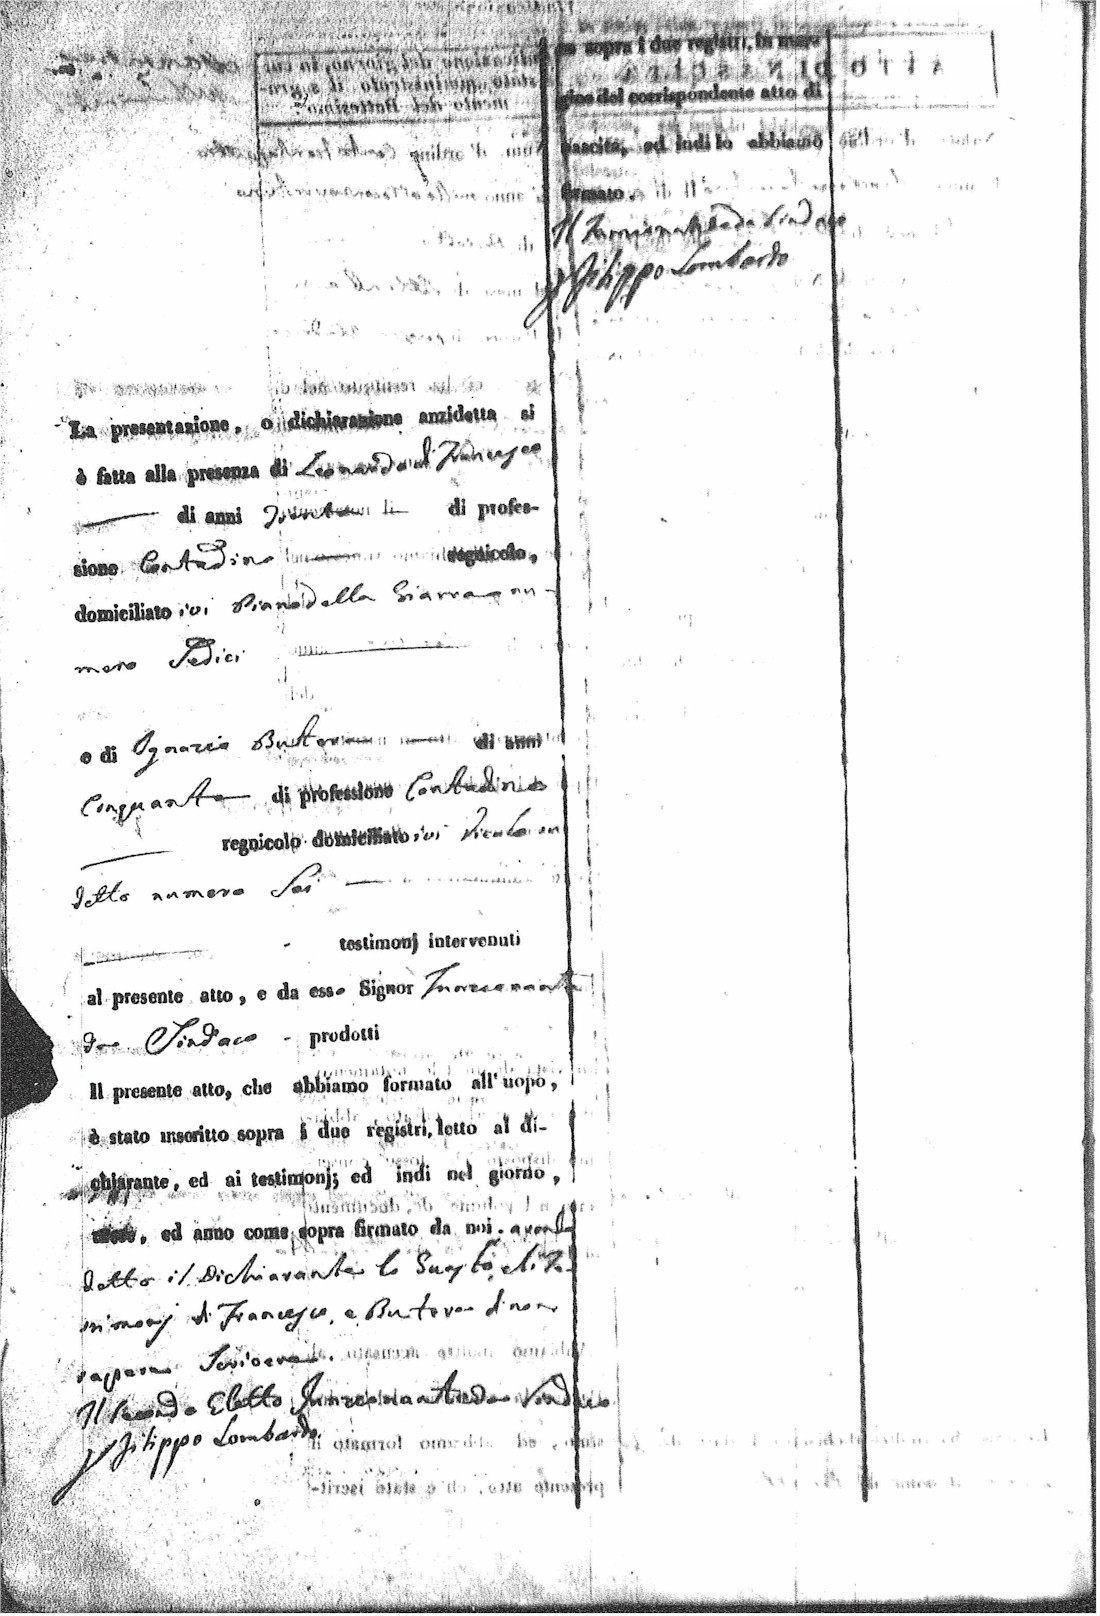 La presentazione, o dichiarazione anzidetta si
è fatta alla presenza di Leonardo di Francesco
di anni di profes-
sione Contadino regnicolo,
domiciliato ivi Piano della Giarra nu-
mero Sedici
e di Ignazio Butera di anni
Cinquanta di professione Contadino
regnicolo domiciliato ivi Vicolo
detto numero Sei
testimonj intervenuti
al presente atto, e da esso Signor Funzionante
da Sindaco prodotti
Il presente atto, che abbiamo formato all'uopo,
è stato inscritto sopra i due registri, letto al di-
chiarante, ed ai testimonj; ed indi nel giorno,
mese, ed anno come sopra firmato da noi. avendo
detto il Dichiarante lo
di Francesco, e Butera di non
sapere Scrivere.
Il Secondo Eletto Funzionante da Sindaco
Filippo Lombardo
sopra i due registri, in mar-
gine del corrispondente atto di
nascita, ed indi lo abbiamo
firmato.
Il Funzionante da Sindaco
Filippo Lombardo